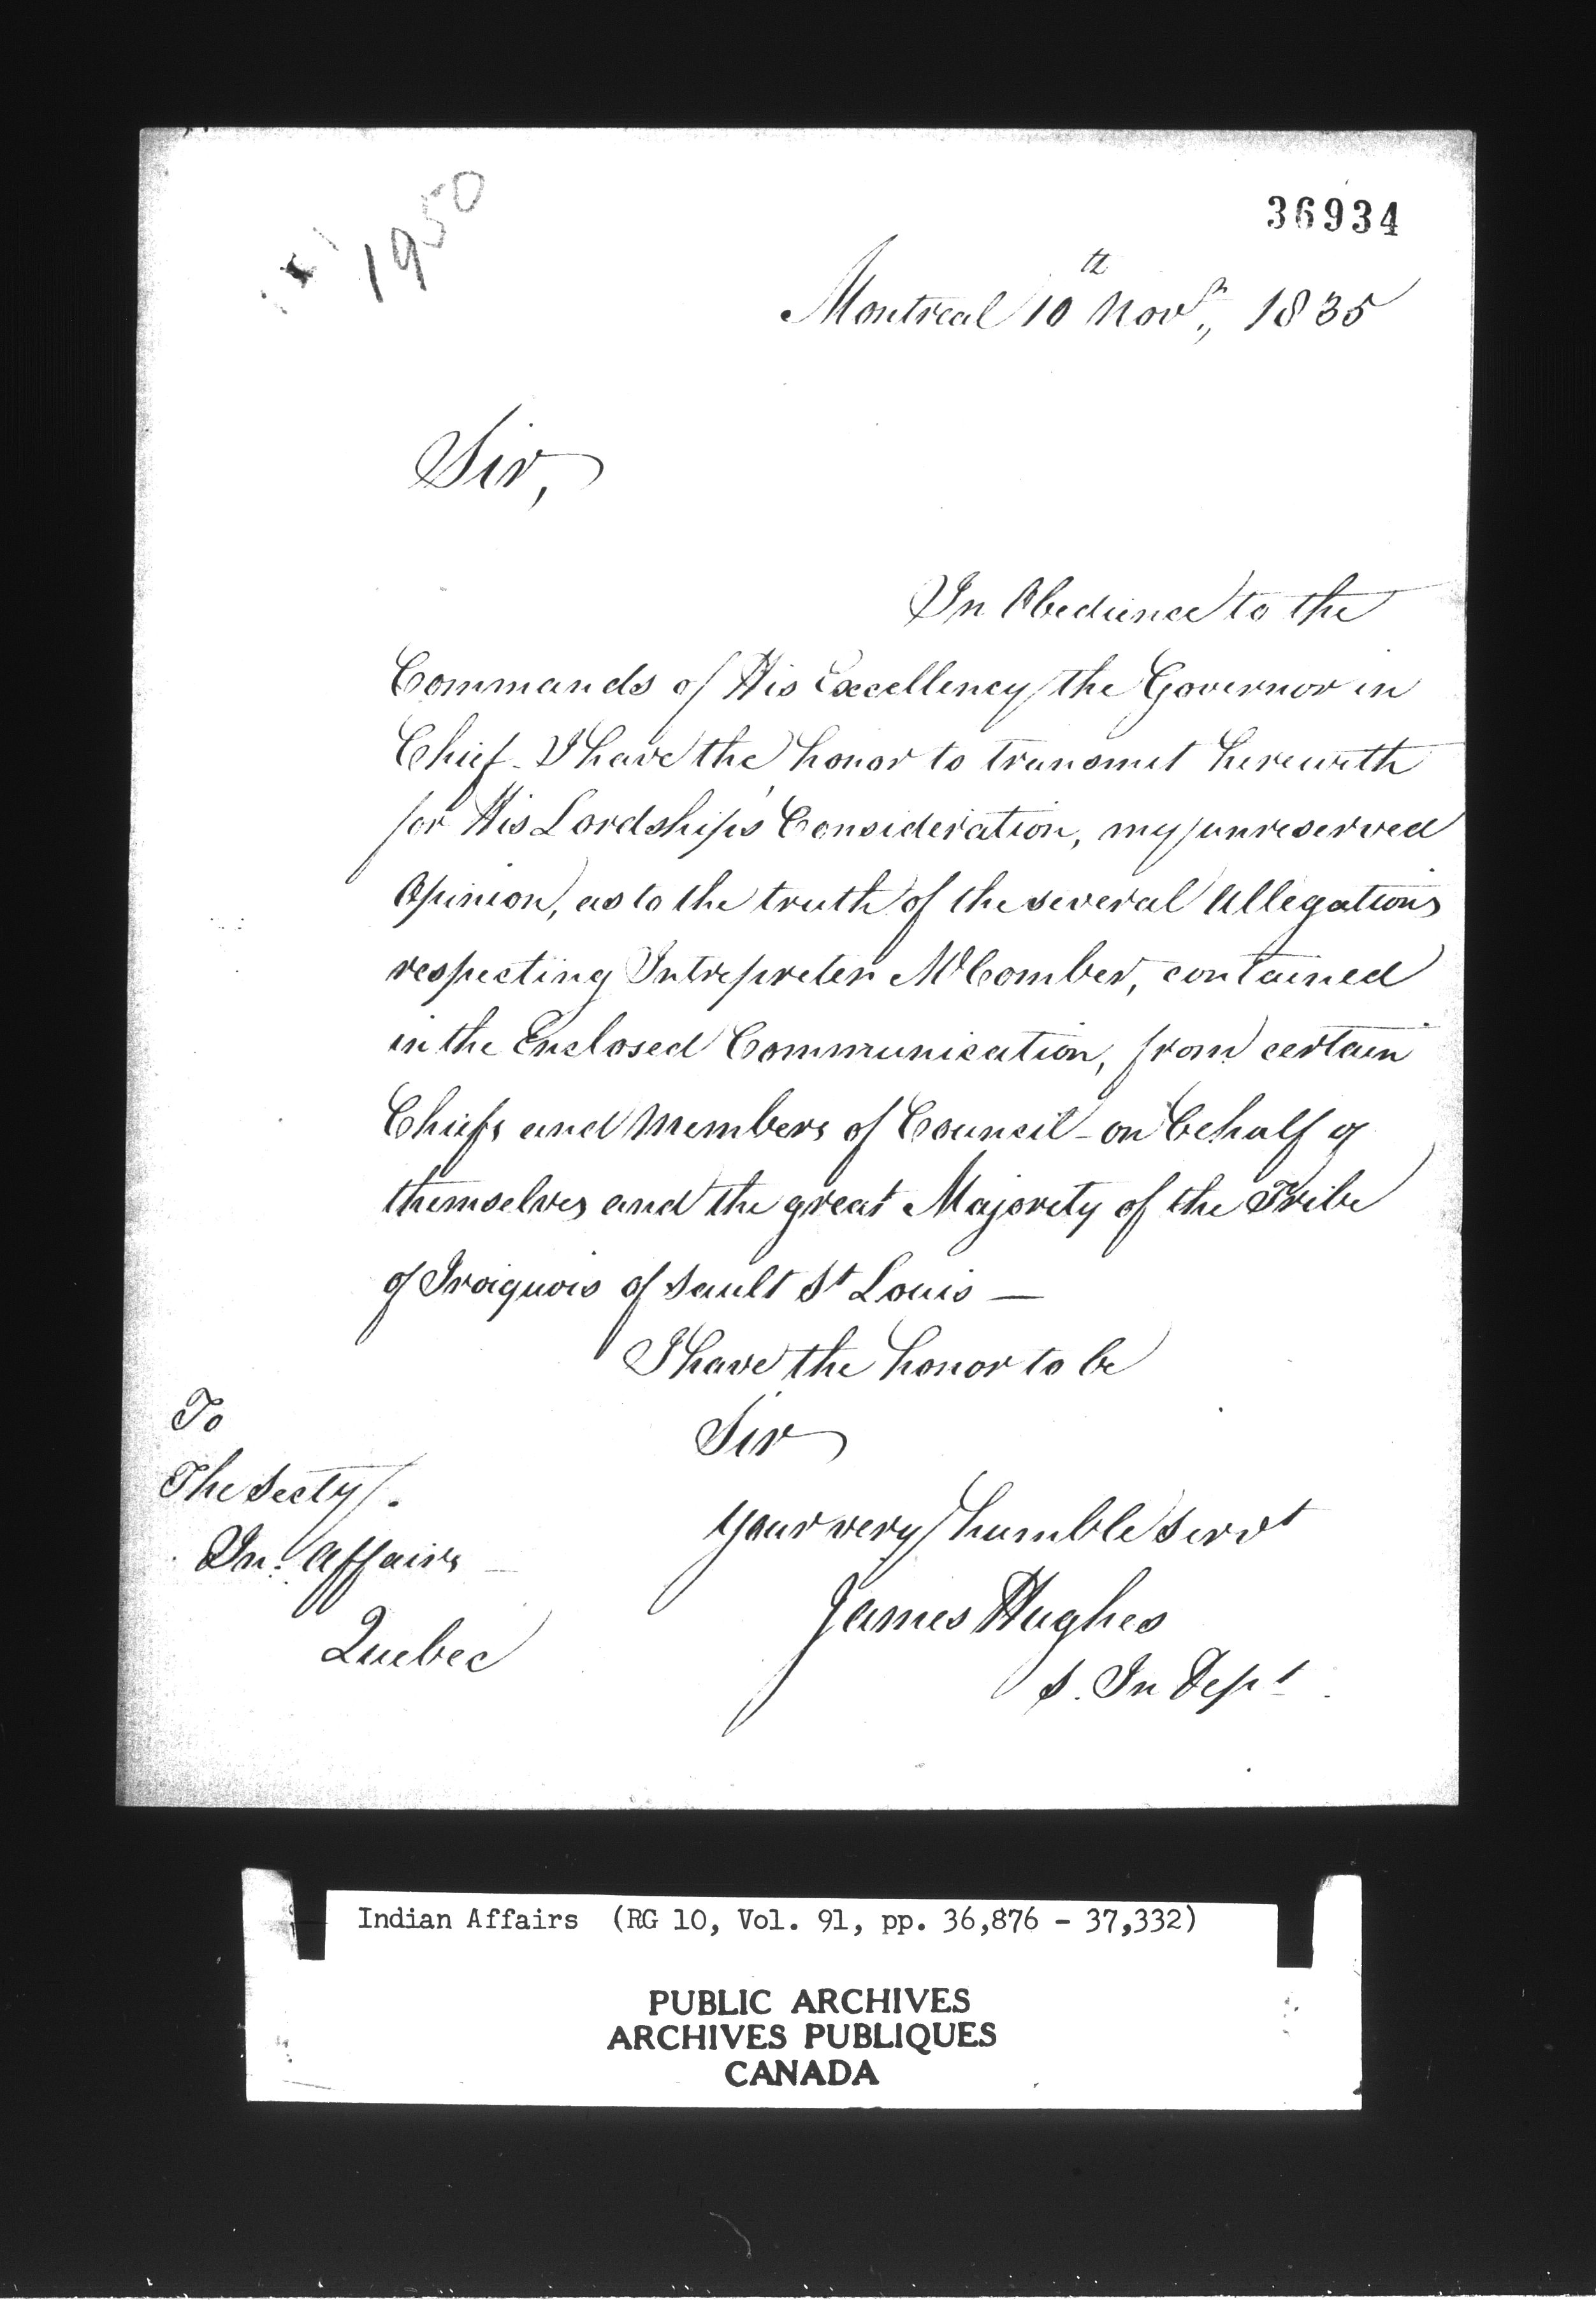 1950
36934
Montreal 10th Novr., 1835
Sir,
In Obedience to the
Commands of His Excellency the Governor in
Chief - I have the honor to transmit herewith
for His Lordship's Consideration, my unreserved
Opinion, as to the truth of the several Allegations
respecting Intrepreter McComber, contained
in the Enclosed Communication, from certain
Chiefs and Members of Council - on behalf of
themselves and the great Majority of the Tribe
of Iroiquois of Sault St Louis —
I have the honor to be
Sir
Your very humble Servt
James Hughes
S. In Dept
To
The Secty.
In. Affairs
Quebec
Indian Affairs (RG 10, Vol. 91, pp. 36,876 - 37,332)
PUBLIC ARCHIVES
ARCHIVES PUBLIQUES
CANADA